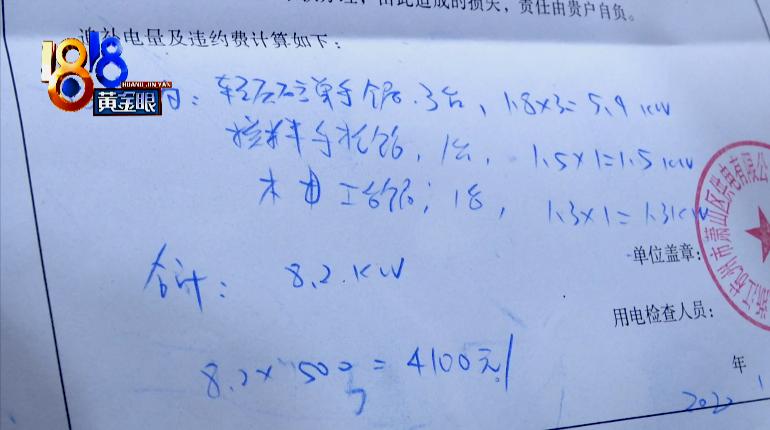 由此造成的损失，责任由贵户自负。
追补电量及违约费计算如下：
1818
HUANG JIN YAN
黄金眼
3台，1.8×3=5.4KW
手枪钻，1台，1.5×1=1.5KW
木工台锯；1台，1.3×1=1.3KW
合计：8.2KW
8.2×500=4100元
单位盖章：
用电检查人员：
年
2022
浙江杭州市萧山区供电有限公